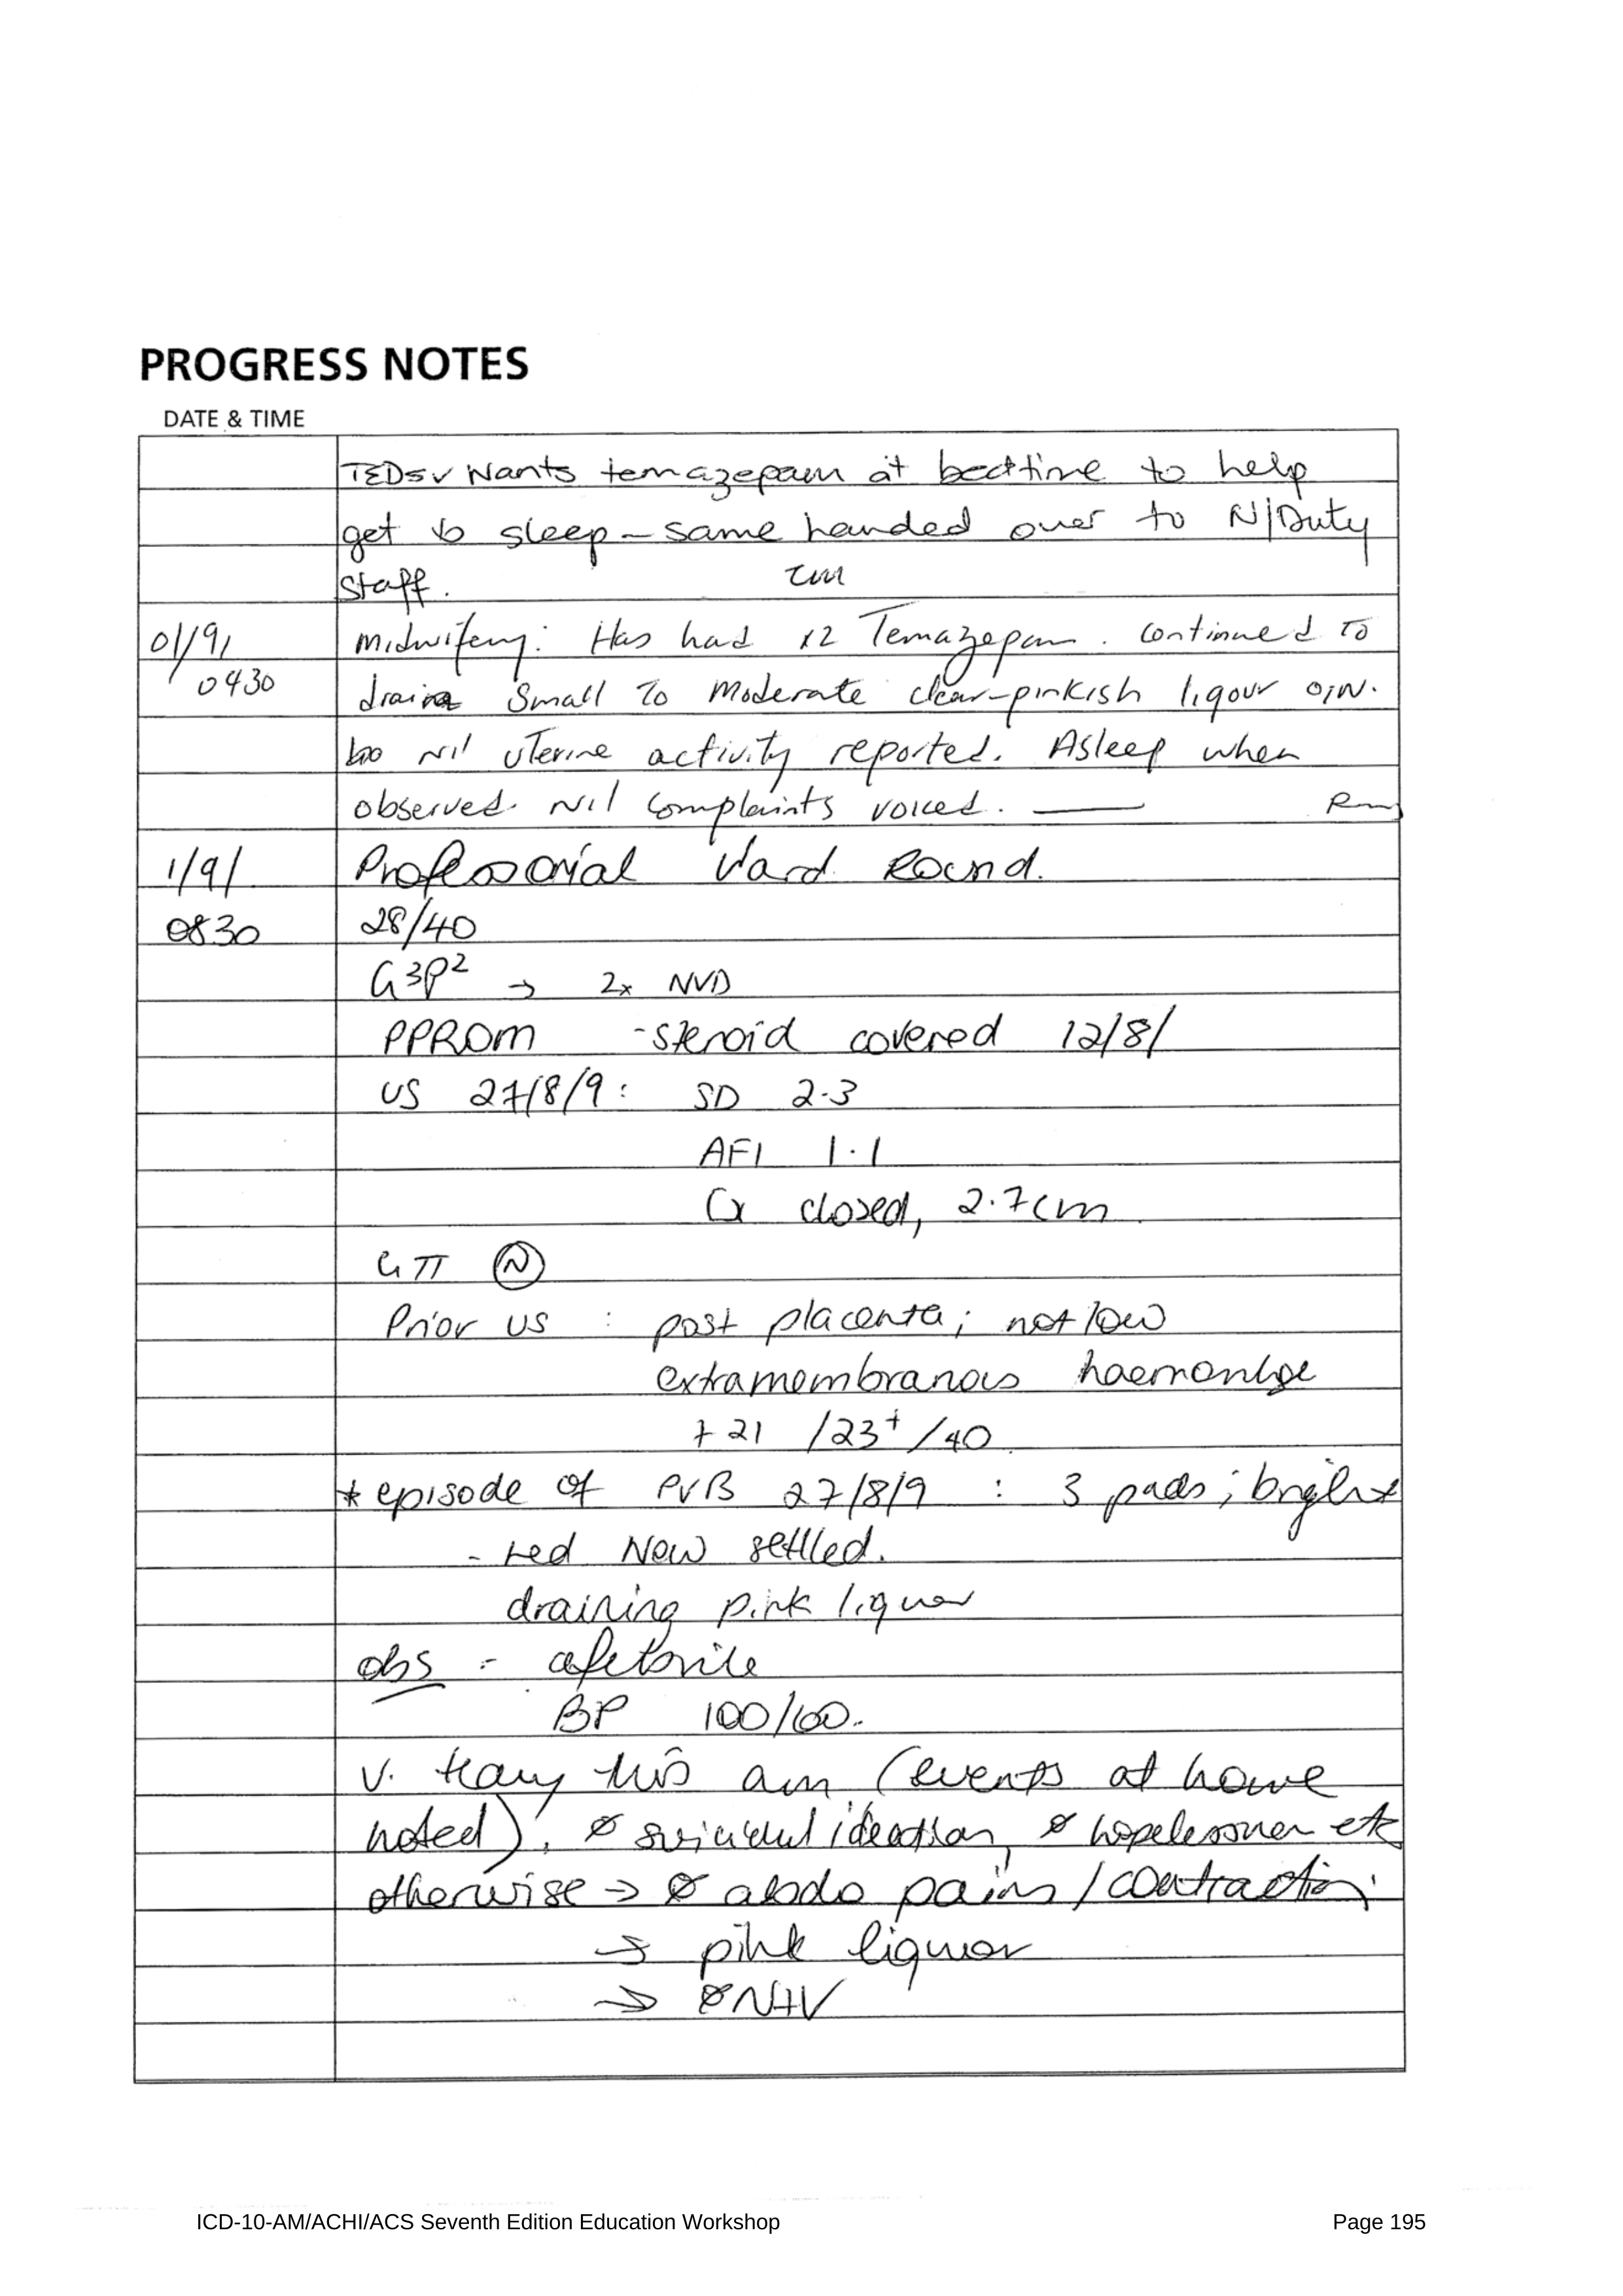 PROGRESS NOTES
DATE & TIME
TEDs✓ Wants temazepam at bedtime to help
get to sleep – same handed over to N/Duty
staff.
01/9/ Midwifery: Has had x2 Temazepam. Continued to
0430 drain Small To Moderate clear-pinkish liqour O/N.
Nil uterine activity reported. Asleep when
observed. Nil complaints voiced.
1/9/ Professorial Ward Round.
0830 28/40
G3P2 → 2x NVD
PPROM - steroid covered 12/8/
US 27/8/9: SD 2.3
AFI 1.1
Cx closed, 2.7cm
GTT (N)
Prior US : post placenta; not low
extramembranous haemorrhge
+ 21 /23+/40
* episode of PVB 27/8/9 : 3 pads; bright
- red Now settled.
draining pink liquor
obs - afebrile
BP 100/60.
v. teary this am (events at home
noted). ø suicidal ideation, ø hopelessness etc
otherwise → ø abdo pains / contraction
→ pink liquor
→ ø N+V
ICD-10-AM/ACHI/ACS Seventh Edition Education Workshop
Page 195